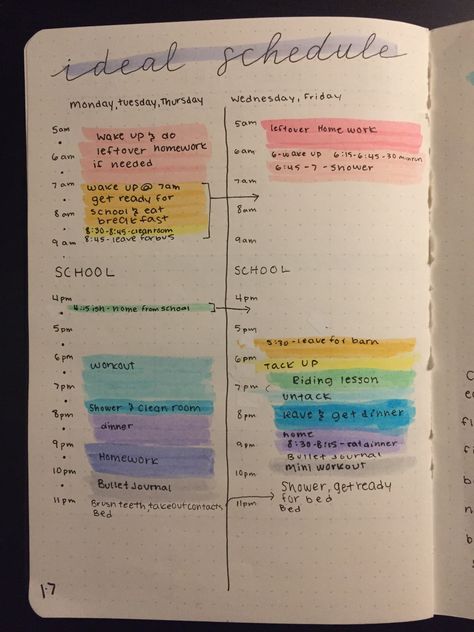 ideal schedule
monday, tuesday, Thursday
5am
6am
7am
8am
9am
wake up & do
leftover homework
if needed
wake up @ 7am
get ready for
school & eat
breakfast
8:30-8:45-clean room
8:45-leave for bus
SCHOOL
4pm
5pm
6pm
7pm
8pm
9pm
10pm
11pm
4:15ish-home from school
workout
Shower & clean room
dinner
Homework
Bullet Journal
Brush teeth, take out contacts
Bed
Wednesday, Friday
5am
6am
7am
8am
9am
leftover homework
6-wake up 6:15-6:45-30 min run
6:45-7-shower
SCHOOL
4pm
5pm
6pm
7pm
8pm
9pm
10pm
11pm
5:30-leave for barn
Tack up
Riding lesson
untack
leave & get dinner
home
8:30-8:45-eat dinner
Bullet Journal
mini workout
Shower, get ready
for bed
Bed
1.7